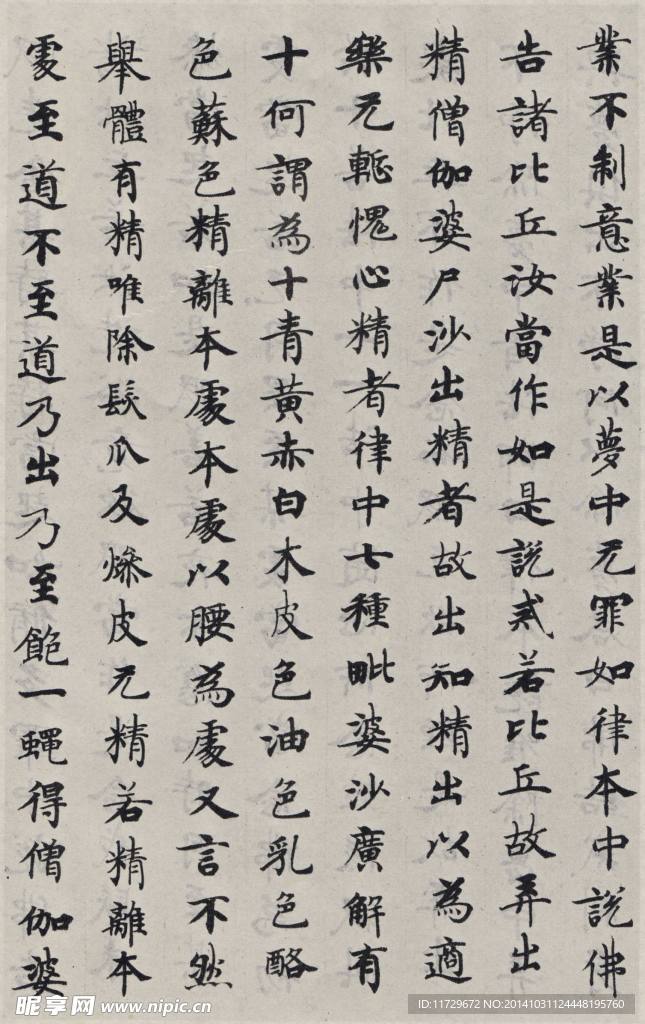 業不制意業是以夢中无罪如律本中說佛
告諸比丘汝當作如是說戒若比丘故弄出
精僧伽婆尸沙出精者故出知精出以為適
樂无慚愧心精者律中七種毗婆沙廣解有
十何謂為十青黃赤白木皮色油色乳色酪
色蘇色精離本處本處以腰為處又言不然
舉體有精唯除髮爪及燥皮无精若精離本
處至道不至道乃出乃至飽一蠅得僧伽婆
昵享网 www.nipic.cn
ID:11729672 NO:20141031124448195760